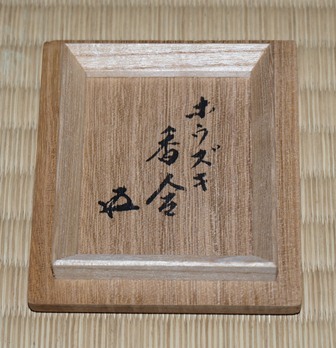 ホウズキ
香合